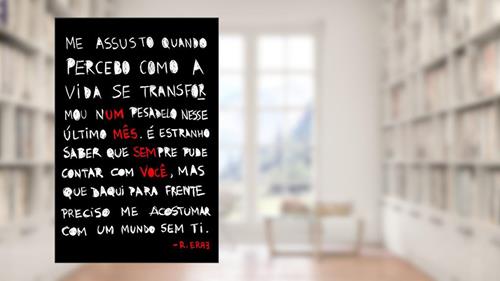 ME ASSUSTO QUANDO
PERCEBO COMO A
VIDA SE TRANSFOR
MOU NUM PESADELO NESSE
ÚLTIMO MÊS. É ESTRANHO
SABER QUE SEMPRE PUDE
CONTAR COM VOCÊ, MAS
QUE DAQUI PARA FRENTE
PRECISO ME ACOSTUMAR
COM UM MUNDO SEM TI.
-R. ERA3